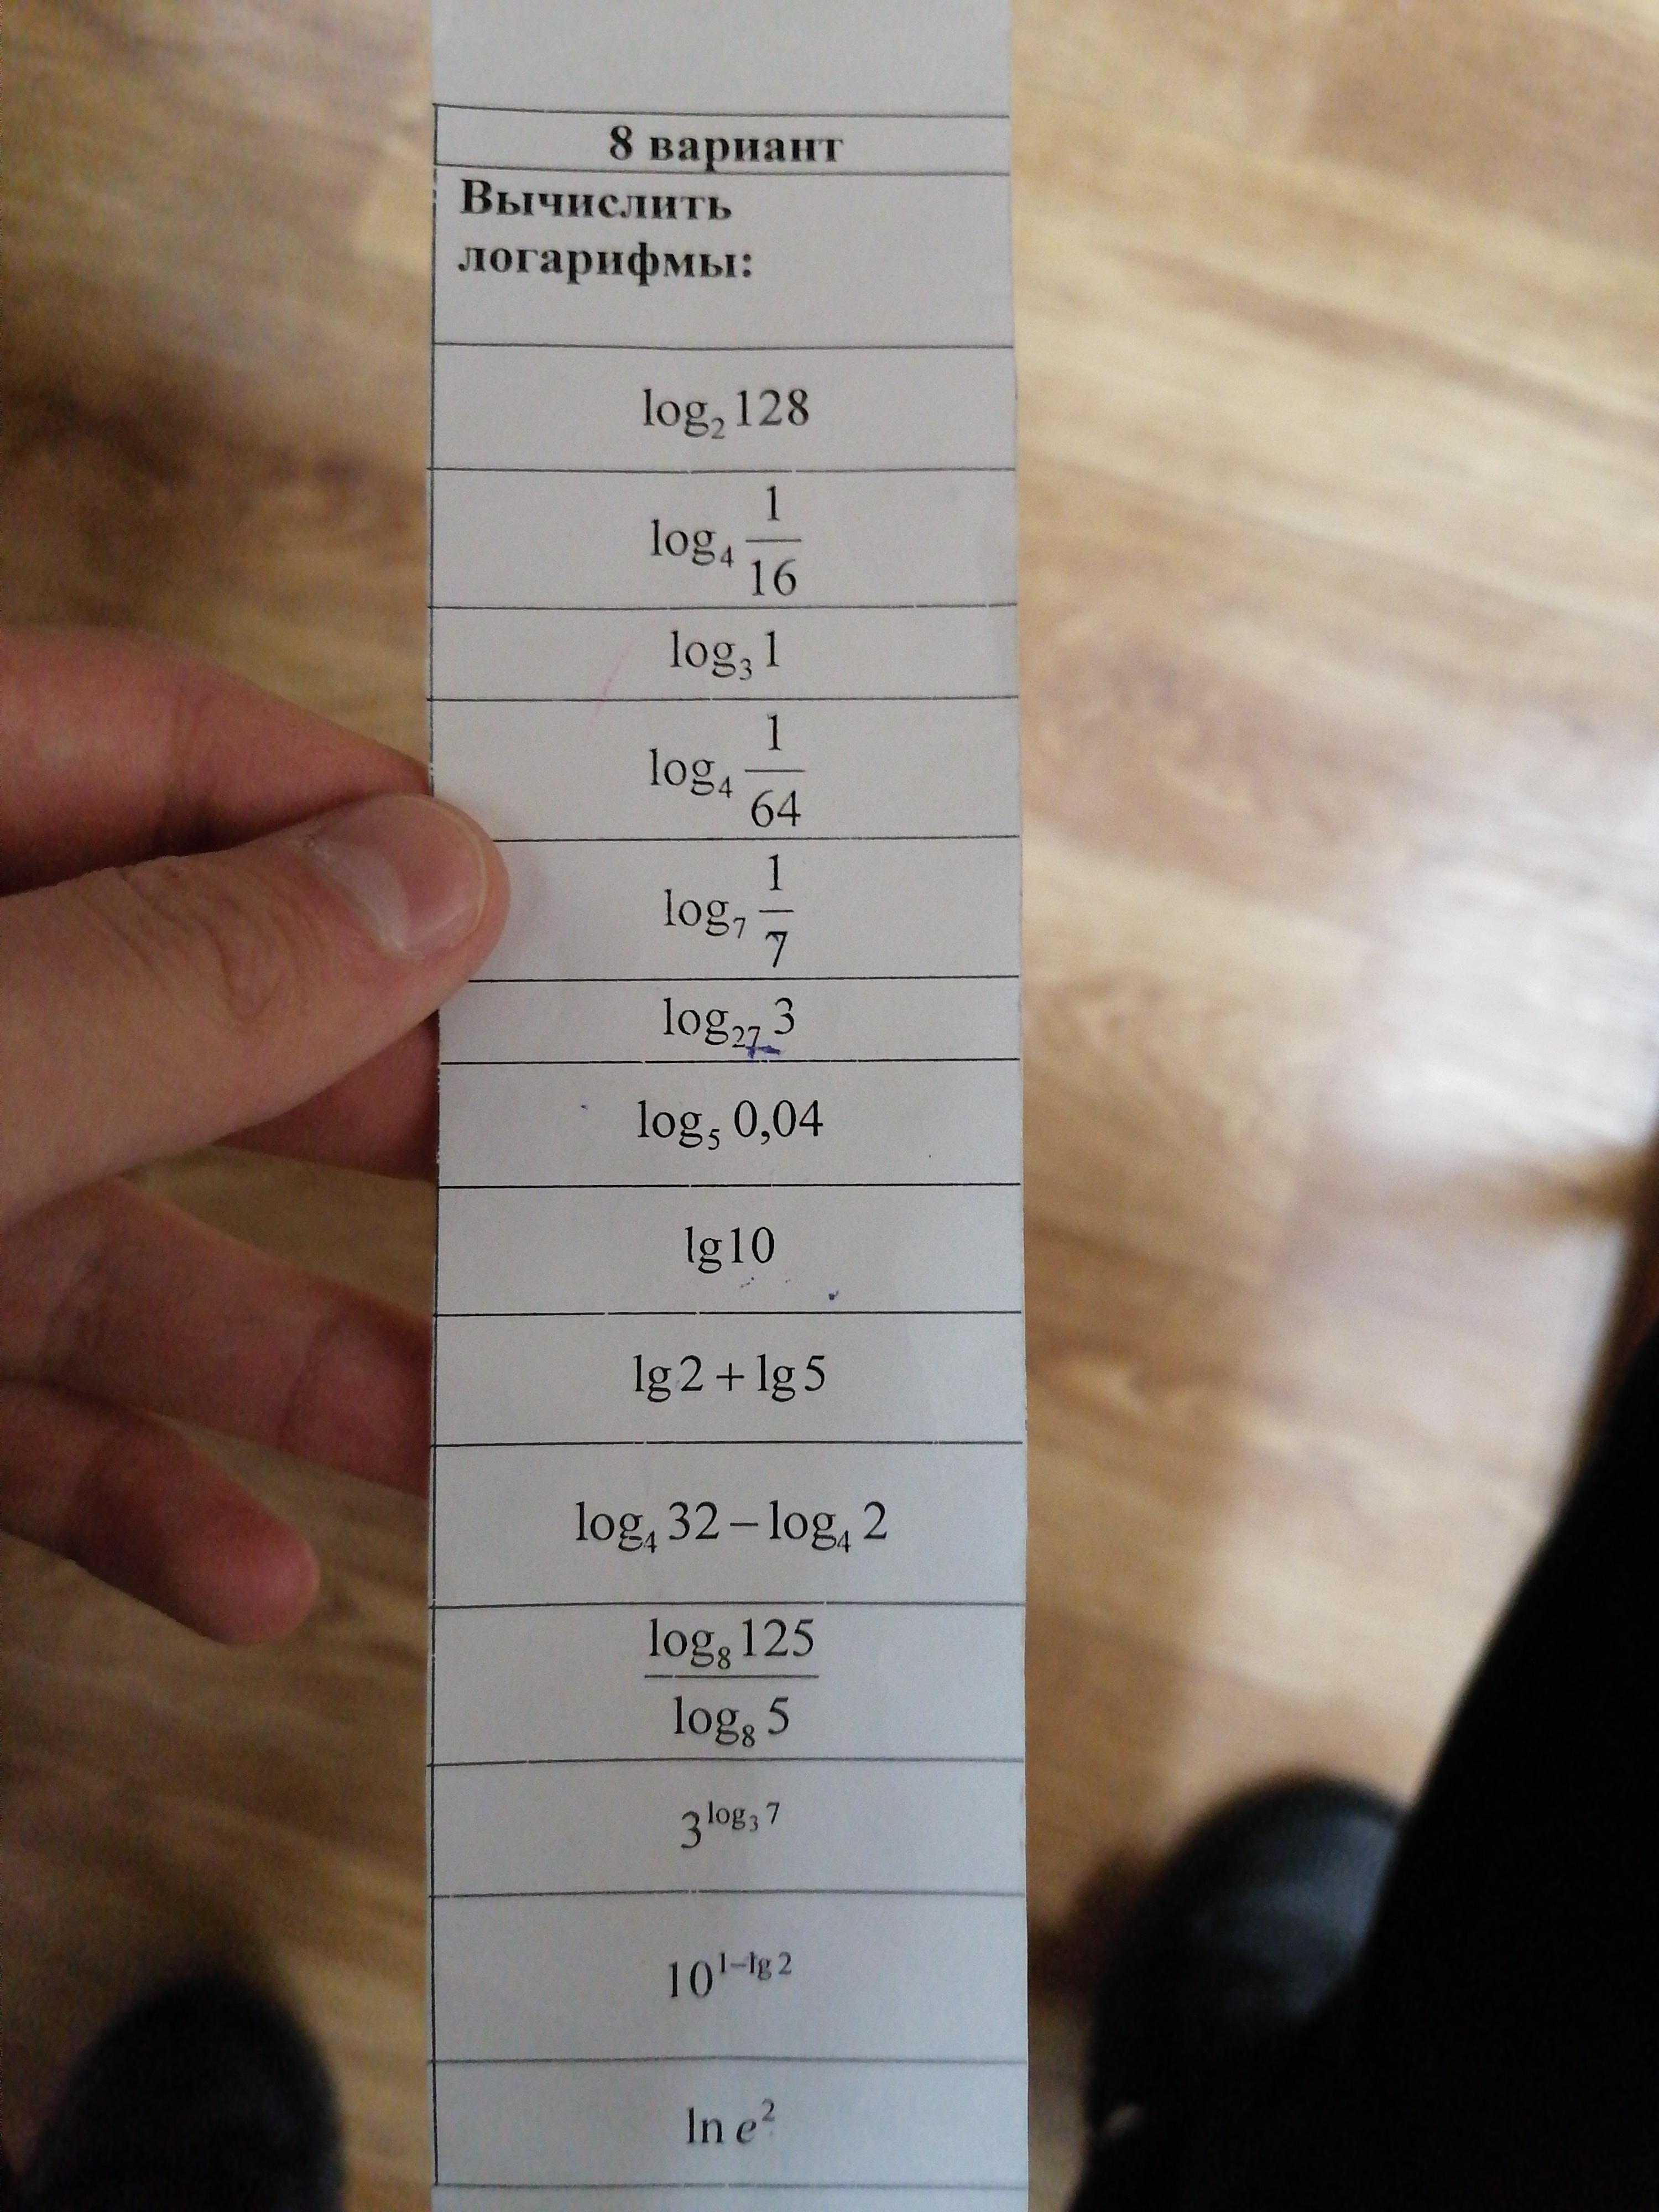 8 вариант
Вычислить
логарифмы:
log₂ 128
log₄ 1/16
log₃ 1
log₄ 1/64
log₇ 1/7
log₂₇ 3
log₅ 0,04
lg10
lg2 + lg5
log₄ 32 – log₄ 2
log₈ 125
log₈ 5
3^log₃ 7
10^1–lg 2
ln e²